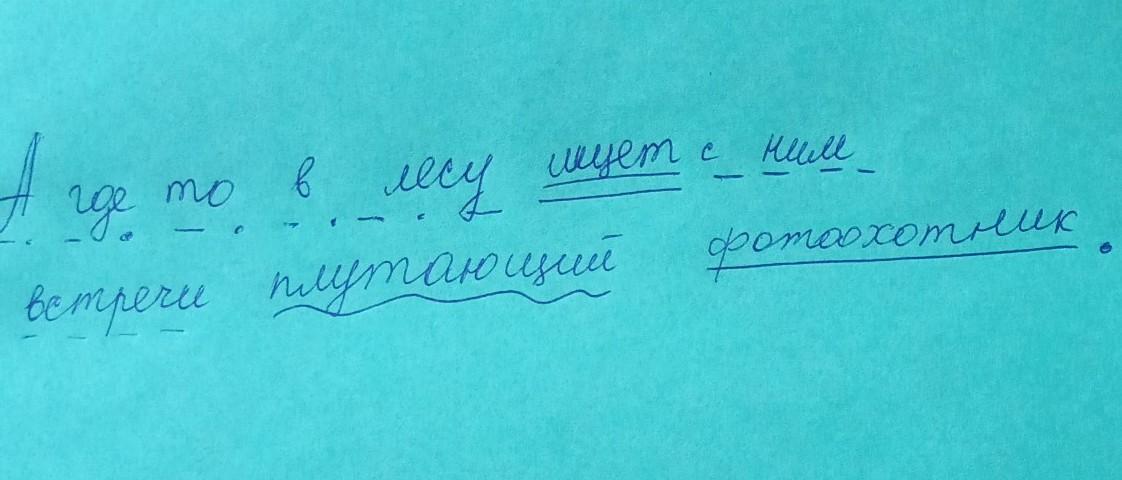 А где то в лесу ищет с ним
встречи плутающий фотоохотник.